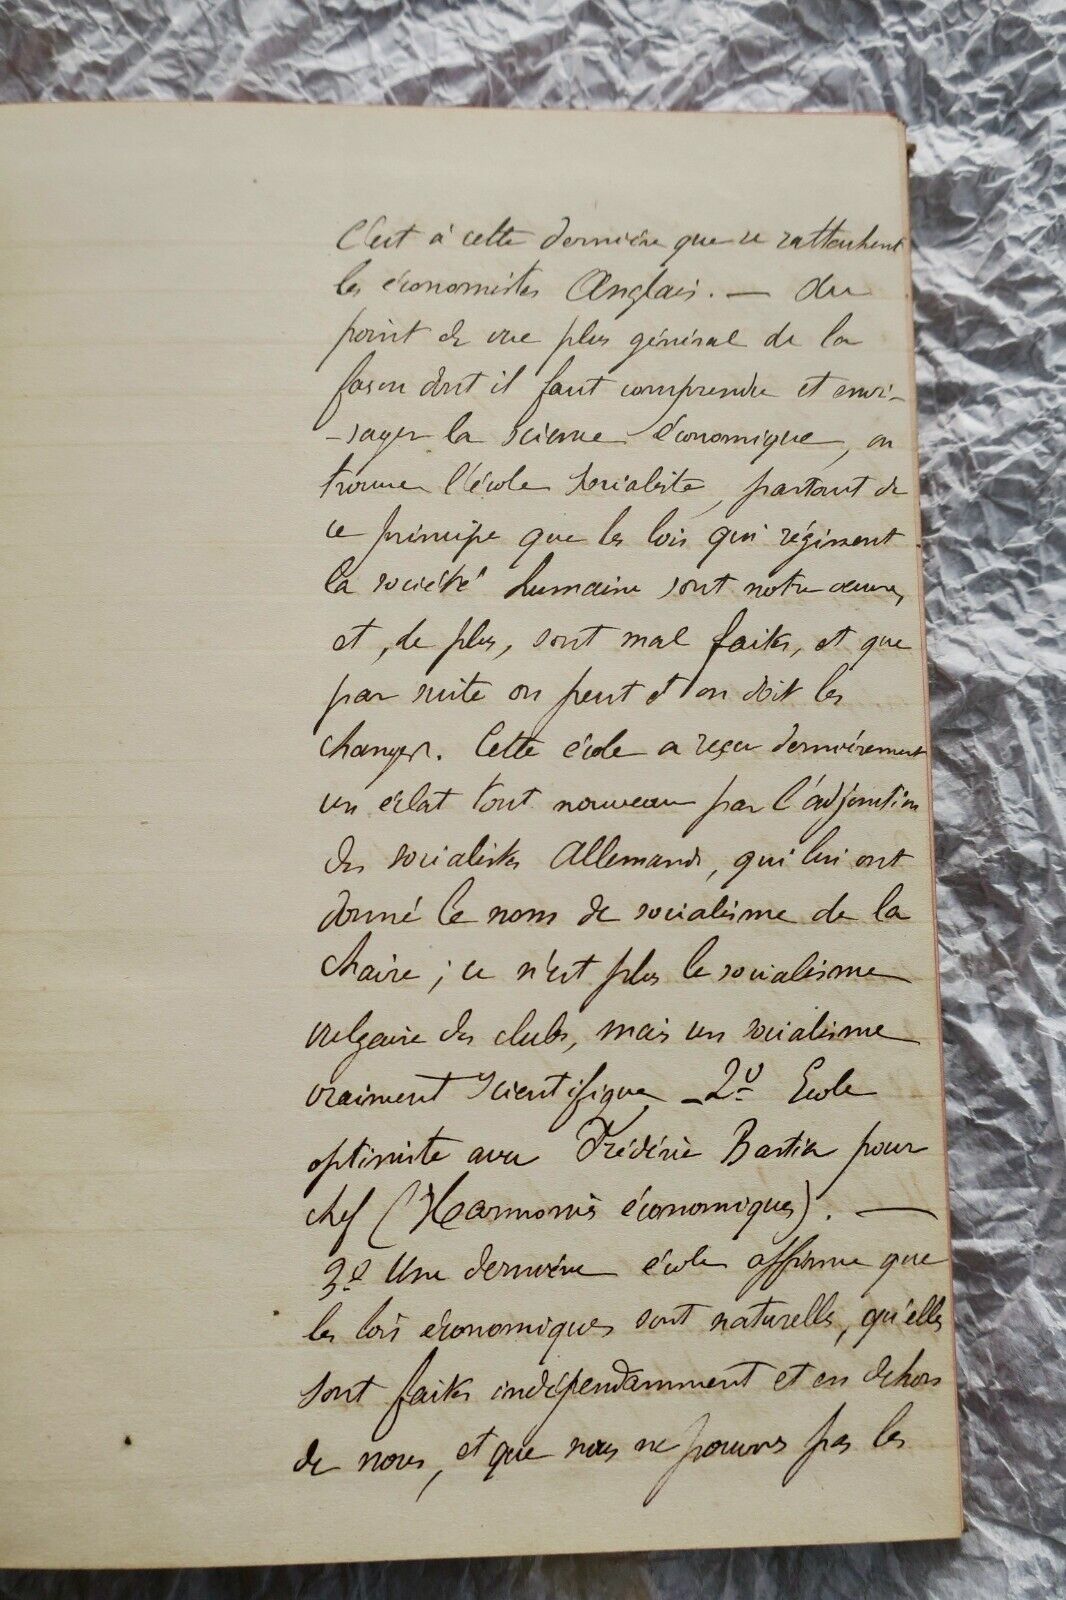 C'est à cette dernière que se rattachent
les économistes Anglais. — Du
point de vue plus général de la
façon dont il faut comprendre et envi-
-sager la science économique, on
trouve l'école socialiste, partant de
ce principe que les lois qui régissent
la société humaine sont notre œuvre,
et, de plus, sont mal faites, et que
par suite on peut et on doit les
changer. Cette école a reçu dernièrement
un éclat tout nouveau par l'adjonction
des socialistes Allemands, qui lui ont
donné le nom de socialisme de la
chaire ; ce n'est plus le socialisme
vulgaire des clubs, mais un socialisme
vraiment scientifique – 2º Ecole
optimiste avec Frédéric Bastia pour
chef (Harmonies économiques). —
3º Une dernière école affirme que
les lois économiques sont naturelles, qu'elles
sont faites indépendamment et en dehors
de nous, et que nous ne pouvons pas les